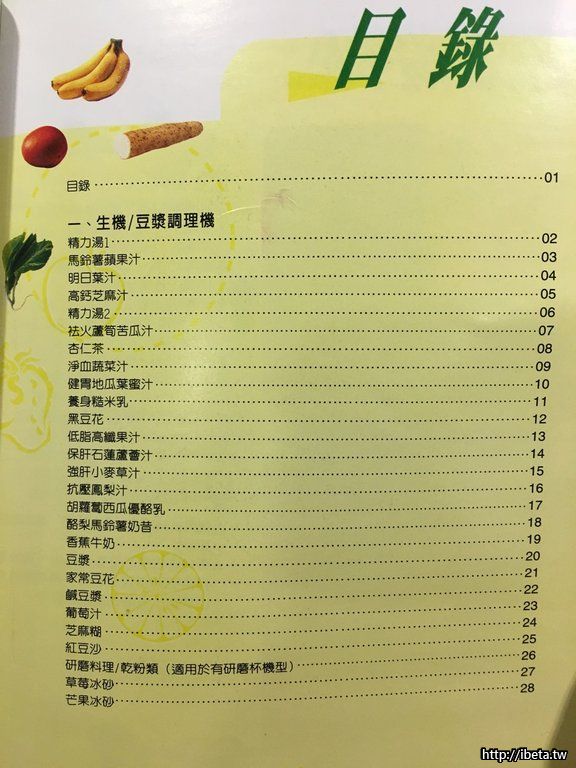 目錄
目錄 01
一、生機/豆漿調理機
精力湯1 02
馬鈴薯蘋果汁 03
明日葉汁 04
高鈣芝麻汁 05
精力湯2 06
祛火蘆筍苦瓜汁 07
杏仁茶 08
淨血蔬菜汁 09
健胃地瓜葉蜜汁 10
養身糙米乳 11
黑豆花 12
低脂高纖果汁 13
保肝石蓮蘆薈汁 14
強肝小麥草汁 15
抗壓鳳梨汁 16
胡蘿蔔西瓜優酪乳 17
酪梨馬鈴薯奶昔 18
香蕉牛奶 19
豆漿 20
家常豆花 21
鹹豆漿 22
葡萄汁 23
芝麻糊 24
紅豆沙 25
研磨料理/乾粉類（適用於有研磨杯機型） 26
草莓冰砂 27
芒果冰砂 28
http://ibeta.tw